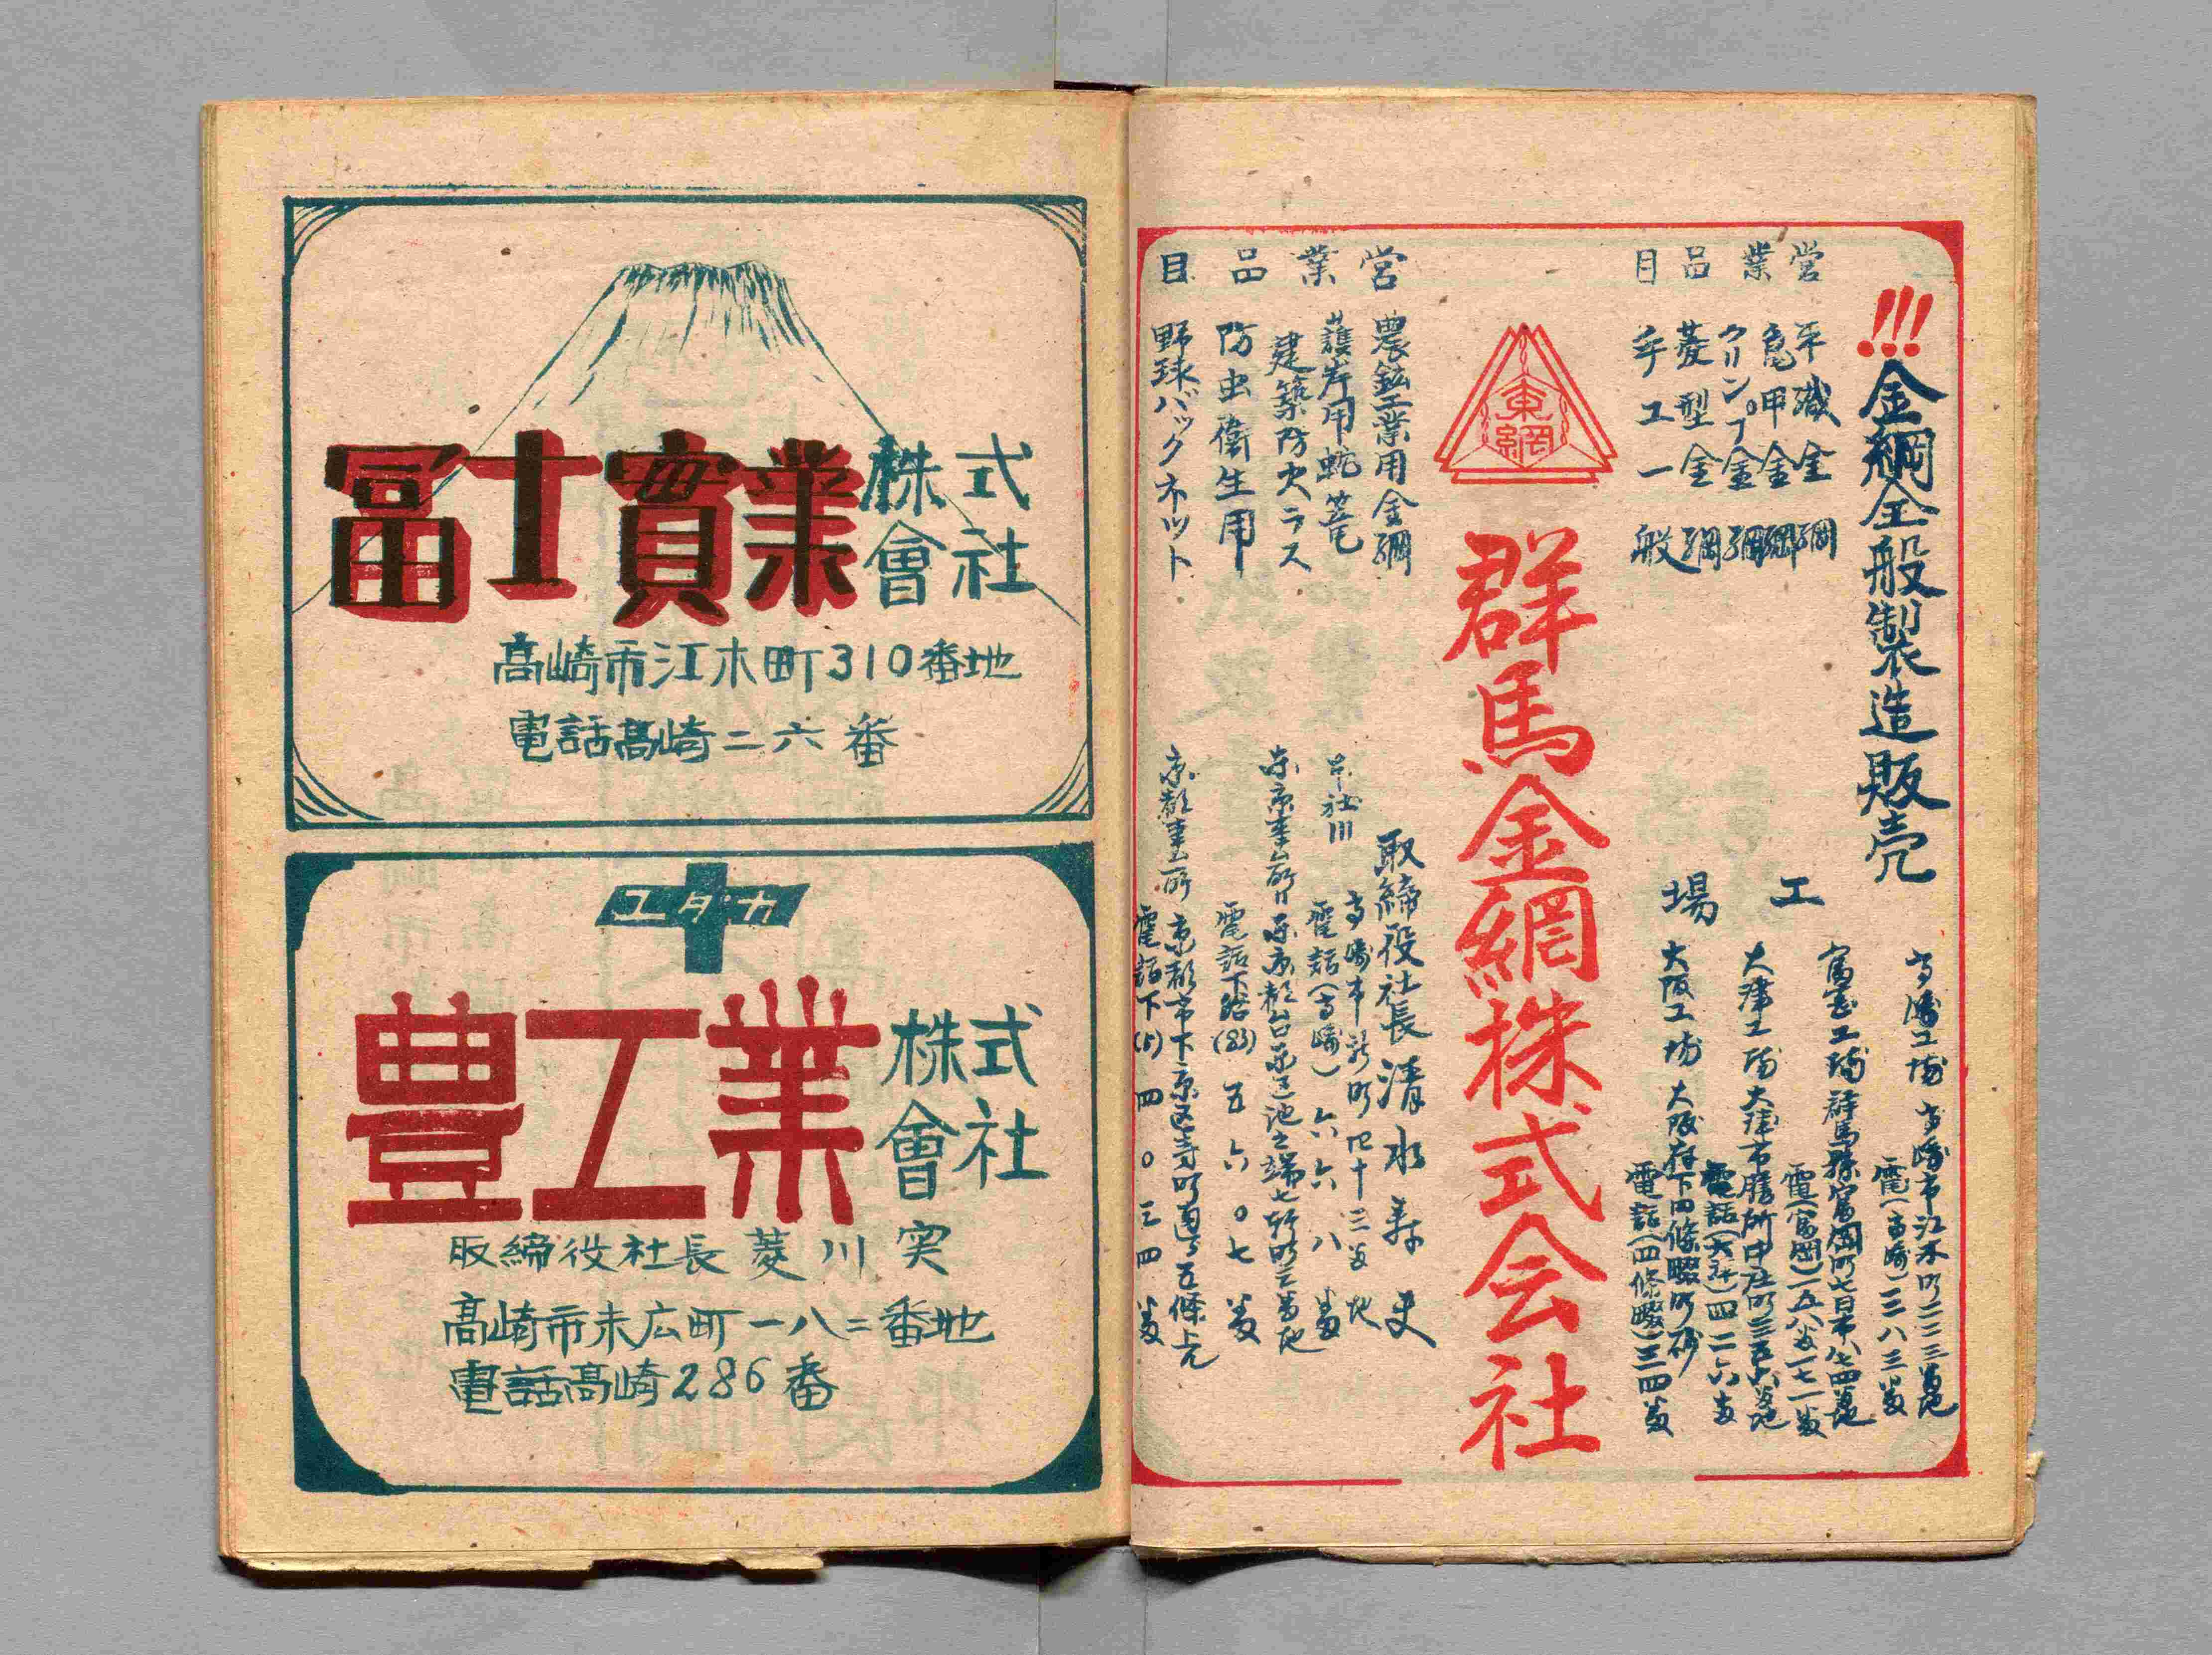 !!!金網全般製造販売
営業品目
平織金網
亀甲金網
クリンプ金網
菱型金網
手工一般
工場
高崎工場 高崎市江木町二二三番地
電(高崎)二八三番
富岡工場 群馬縣富岡町七日市八七四番地
電(富岡)一五八番一七一番
大津工場 大津市膳所中庄町三五六番地
電話(大津)四二六番
大阪工場 大阪府下四條畷町砂
電話(四條畷)三四番
東網
群馬金網株式会社
営業品目
農鉱工業用金網
護岸用蛇篭
建築防火ラス
防虫衛生用
野球バックネット
取締役社長 清水寿夫
本社 高崎市新町四十三番地
電話(高崎)六六八番
東京事ム所 東京都台東区池之端七軒町三番地
電話下谷(83)五六〇七番
京都事ム所 京都市下京区寺町通五條上ル
電話下(5)四〇三四番
冨士實業株式會社
高崎市江木町310番地
電話高崎二六番
ユタカ
豊工業株式會社
取締役社長 菱川 実
高崎市末広町一八二番地
電話高崎286番